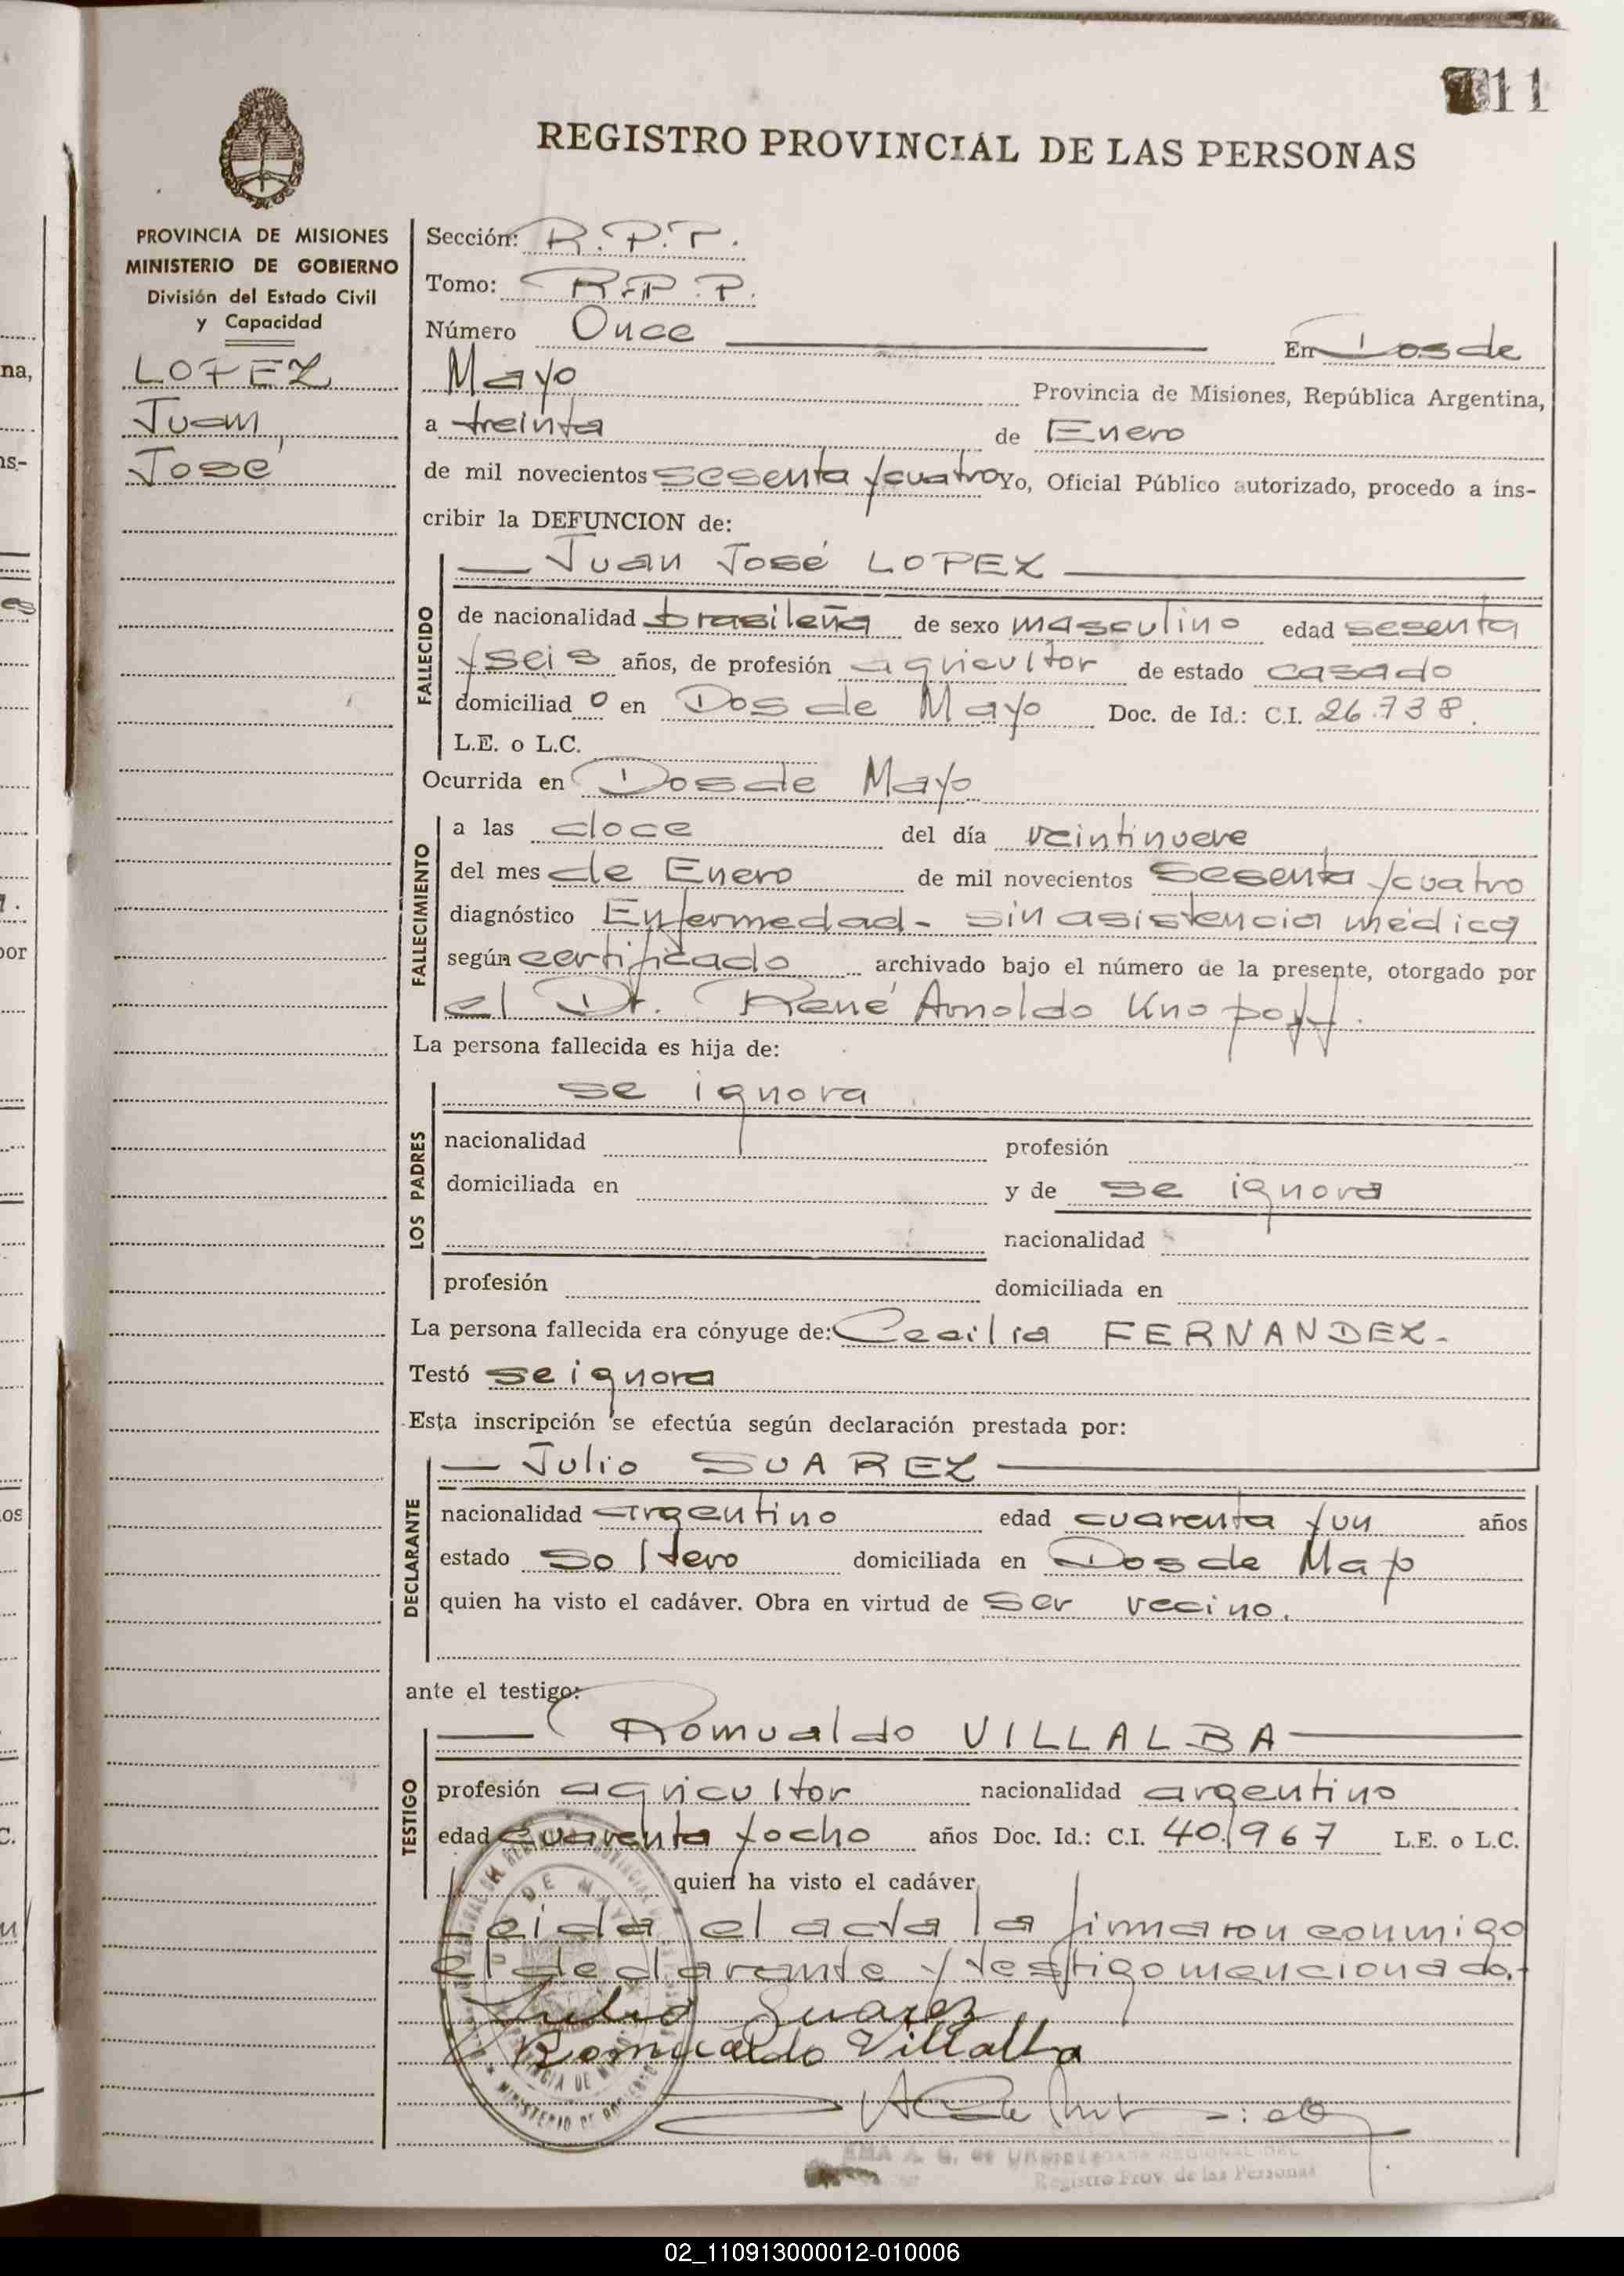 11
REGISTRO PROVINCIAL DE LAS PERSONAS
PROVINCIA DE MISIONES
MINISTERIO DE GOBIERNO
División del Estado Civil
y Capacidad
LOPEZ
Juan
José
Sección: R.P.T.
Tomo: R.P.P.
Número Once En Dos de
Mayo Provincia de Misiones, República Argentina,
a treinta de Enero
de mil novecientos sesenta y cuatro Yo, Oficial Público autorizado, procedo a ins-
cribir la DEFUNCION de:
Juan José LOPEZ
FALLECIDO
de nacionalidad brasileña de sexo masculino edad sesenta
y seis años, de profesión agricultor de estado casado
domiciliad o en Dos de Mayo Doc. de Id.: C.I. 26.738.
L.E. o L.C.
Ocurrida en Dos de Mayo
FALLECIMIENTO
a las doce del día veintinueve
del mes de Enero de mil novecientos sesenta y cuatro
diagnóstico Enfermedad - sin asistencia médica
según certificado archivado bajo el número de la presente, otorgado por
el Dr. René Arnoldo Knopoff.
La persona fallecida es hija de:
LOS PADRES
se ignora
nacionalidad profesión
domiciliada en y de se ignora
nacionalidad
profesión domiciliada en
La persona fallecida era cónyuge de: Cecilia FERNANDEZ.
Testó se ignora
Esta inscripción se efectúa según declaración prestada por:
DECLARANTE
Julio SUAREZ
nacionalidad argentino edad cuarenta y un años
estado soltero domiciliada en Dos de Mayo
quien ha visto el cadáver. Obra en virtud de ser vecino.
ante el testigo:
TESTIGO
Romualdo VILLALBA
profesión agricultor nacionalidad argentino
edad cuarenta y ocho años Doc. Id.: C.I. 40.967 L.E. o L.C.
quien ha visto el cadáver
Leida el acta la firmaron conmigo
el declarante y testigo mencionado.-
Julio Suarez
Romualdo Villalba
DE MAYO
MINISTERIO DE GOBIERNO
Registro Prov. de las Personas
02_110913000012-010006